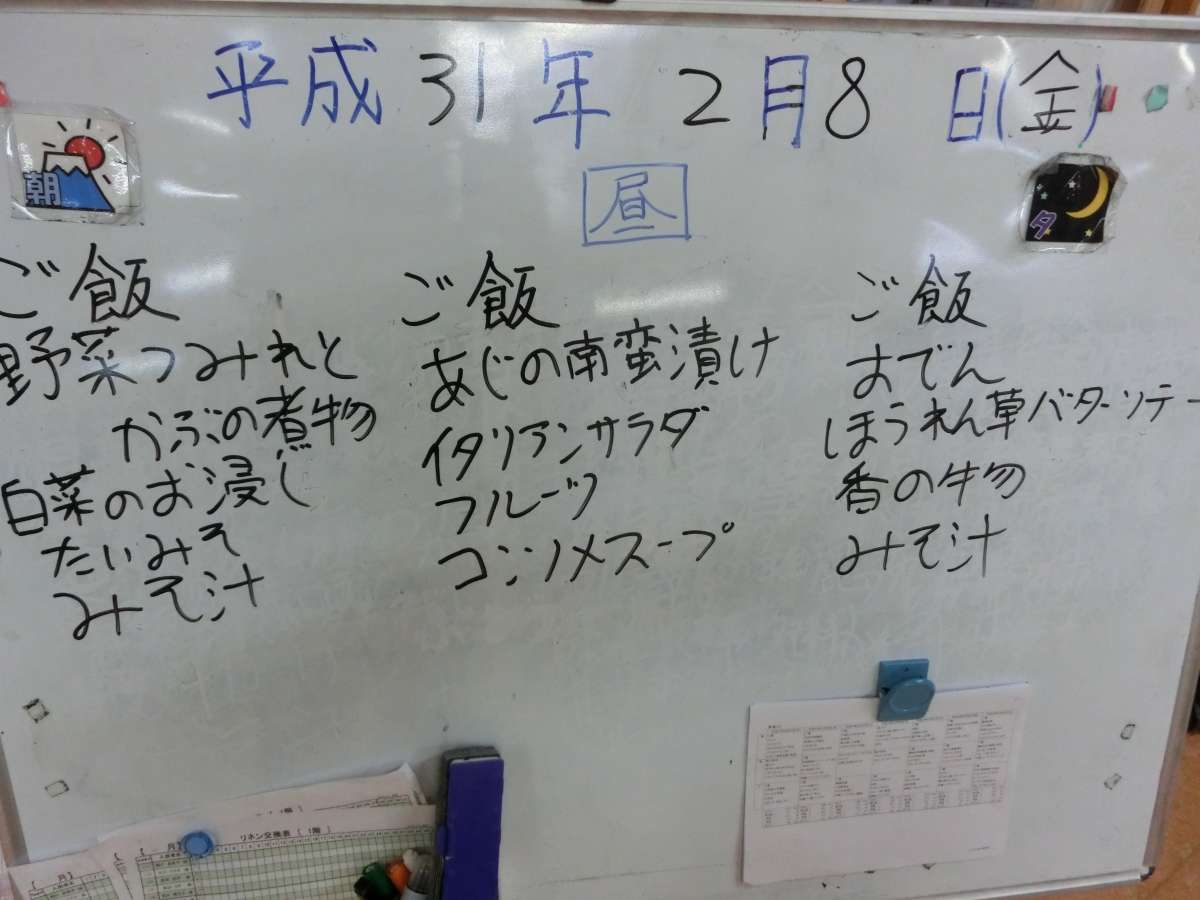 平成31年2月8日(金)
朝
昼
夕
ご飯
野菜つみれと
かぶの煮物
白菜のお浸し
たいみそ
みそ汁
ご飯
あじの南蛮漬け
イタリアンサラダ
フルーツ
コンソメスープ
ご飯
おでん
ほうれん草バターソテー
香の物
みそ汁
リネン交換表 [ 1階 ]
[ 月]